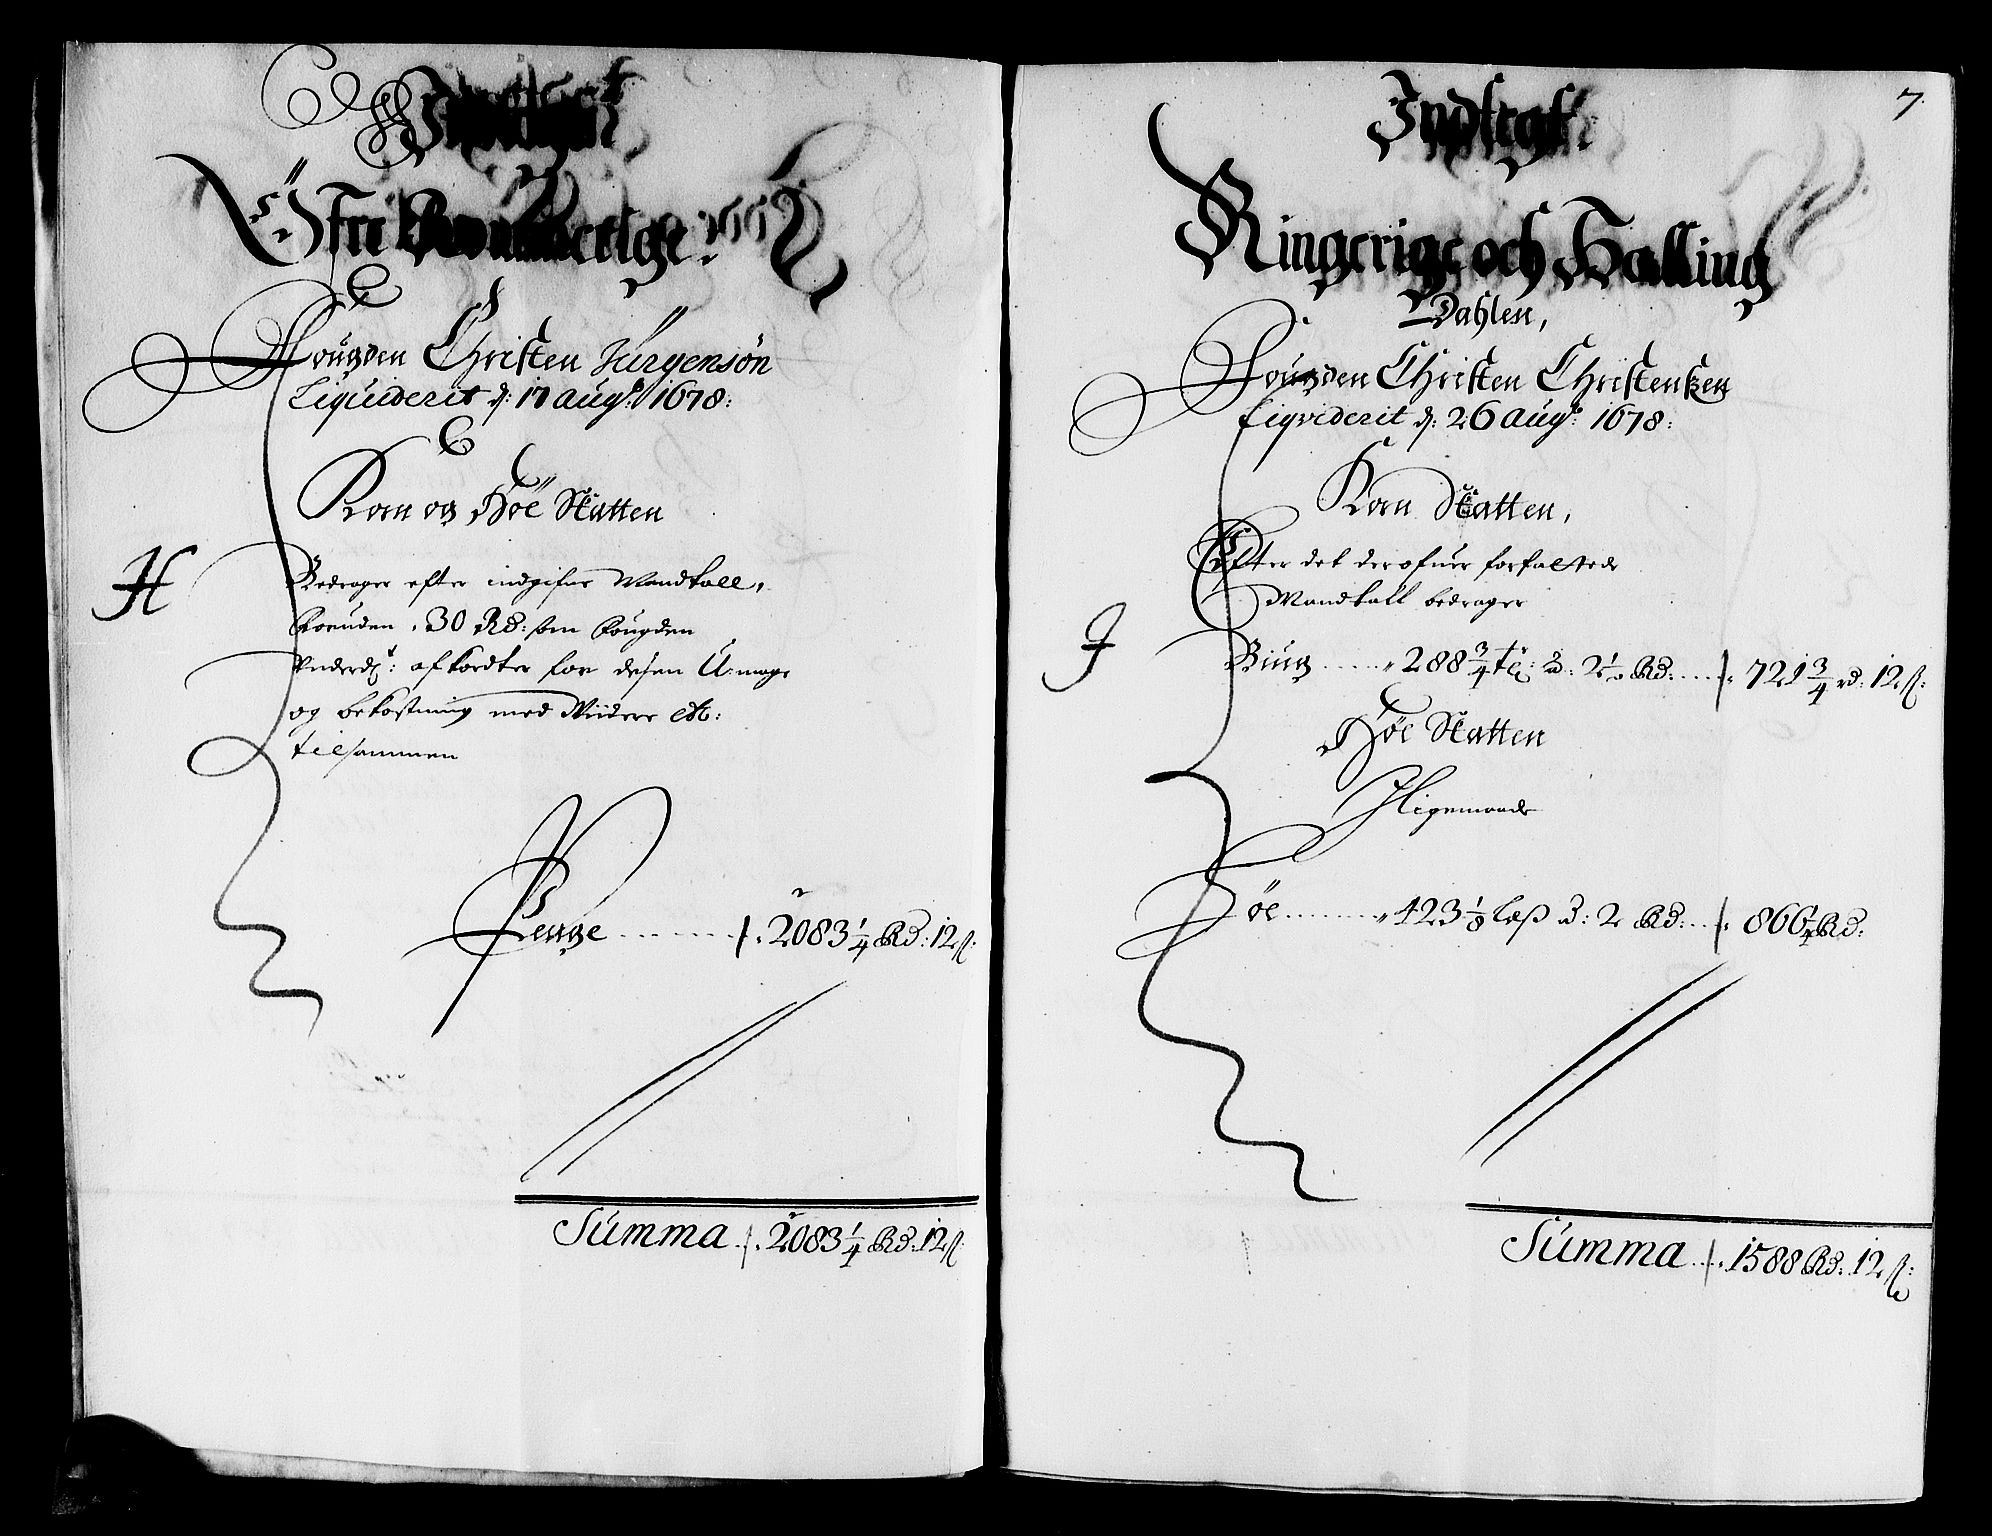 Indtegt
Øfri Rommerige
Fougden Christen Jürgensön
Liquiderit d: 17 aug: 1678:
Korn og Höe Skatten
H
Bedrager efter indgifne Mandtall,
foruden 30 Rd: som fougden
Underd: afkordter for desen U-mage
og bekostning med Widere etc:
tilsammen
Penge ........ 2083 1/4 Rd: 12 ß:
Summa .. 2083 1/4 Rd: 12 ß:
7.
Indtegt
Ringerige och Halling
Dahlen,
Fougden Christen Christenßen
Liqviderit d: 26 aug: 1678:
Korn Skatten,
Efter det derofuer forfattede
Mandtall bedrager
J
Biug ...... 288 3/4 tr: à: 2 1/2 Rd: .... 721 3/4 rd: 12 ß:
Höe Skatten
Jligemaade
Höe ........ 423 1/8 læß à: 2 Rd: ... 866 1/4 Rd:
Summa .... 1588 Rd: 12 ß: